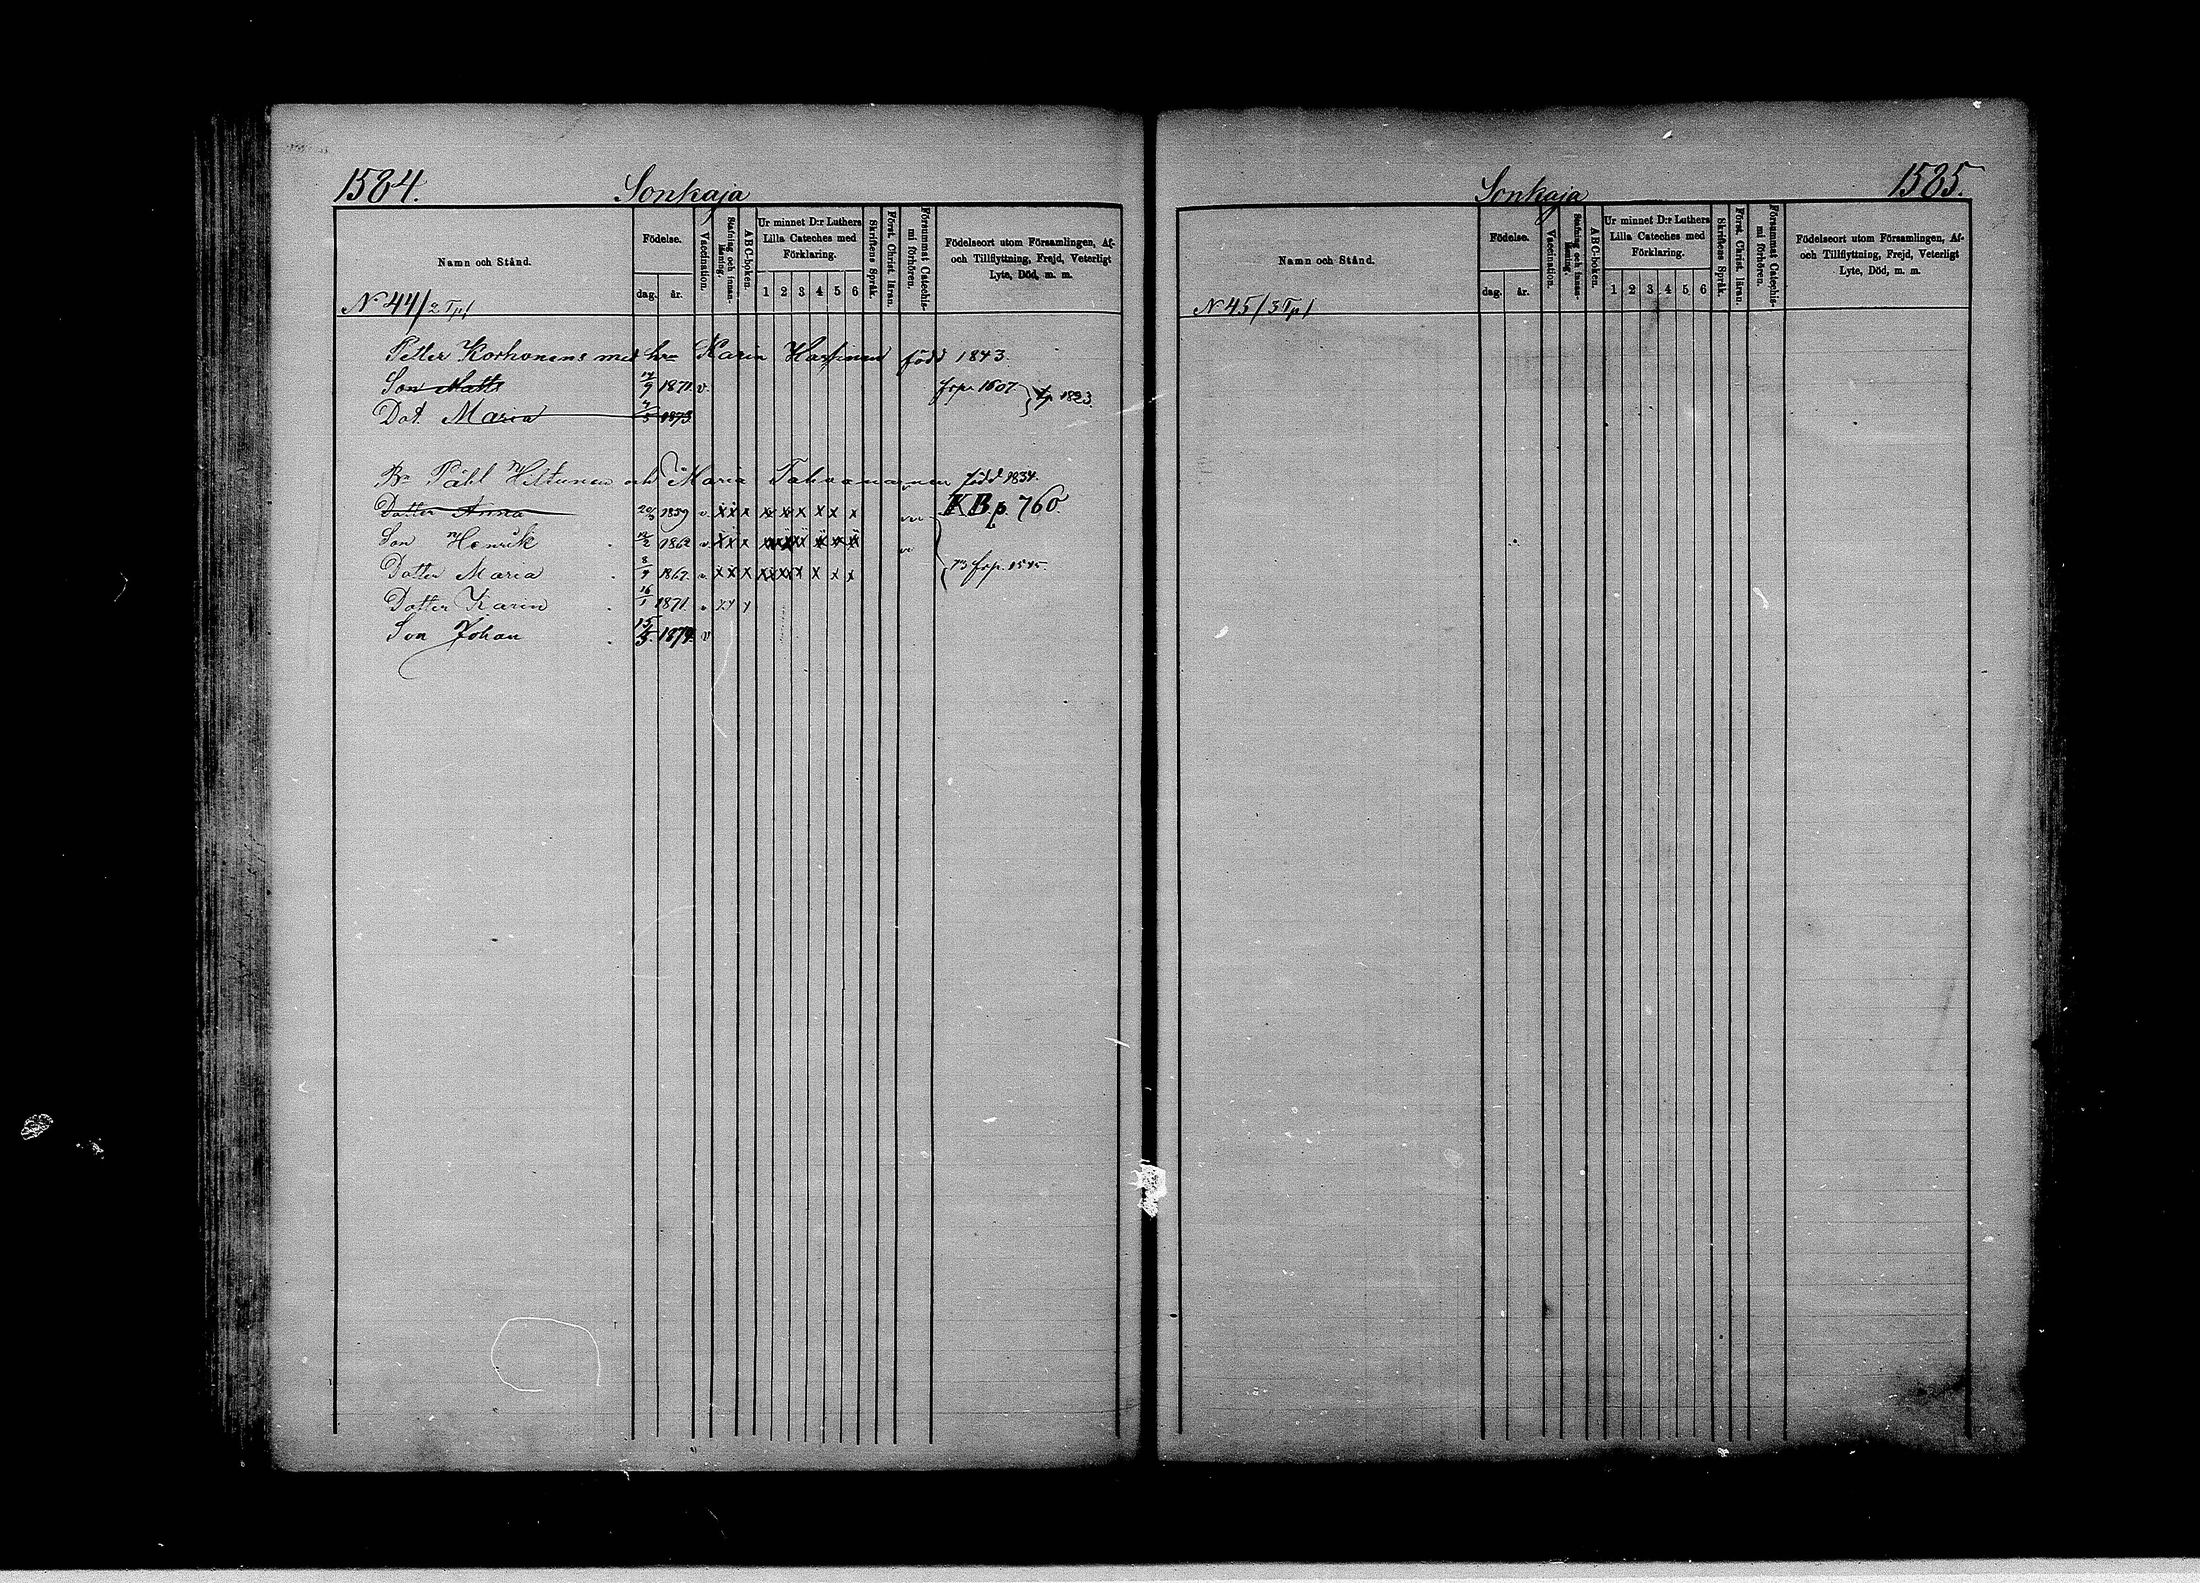 1584.
Sonkaja
Namn och Stånd.
Födelse.
dag.
år.
Vaccination.
Stafning och innanläsning.
ABC-boken.
Ur minnet D:r Luthers Lilla Cateches med Förklaring.
1 2 3 4 5 6
Skriftens Språk.
Först. Christ. läran.
Försummat Catechismi förhören.
Födelseort utom Församlingen, Af- och Tillflyttning, Frejd, Veterligt Lyte, Död, m. m.
N 44/2 Tp/
Petter Korhonens med hu Karin född 1843.
Son Matts 9 1871 v. frp. 1607
Dot. Maria 1873
Påhl Hiltunen och Maria Tahvanainen född 1834.
Dotter Anna 1859 v. x x x x x x x x x KB p. 760.
Son Henrik 12/2 1862 v. x x x x x x x x x
Dotter Maria 8/4 1867. v. x x x x x x x x x 73 frp. 1545.
Dotter Karin 16/1 1871.
Son Johan 15/5. 1874. v
1585.
Sonkaja
Namn och Stånd.
Födelse.
dag.
år.
Vaccination.
Stafning och innanläsning.
ABC-boken.
Ur minnet D:r Luthers Lilla Cateches med Förklaring.
1 2 3 4 5 6
Skriftens Språk.
Först. Christ. läran.
Försummat Catechismi förhören.
Födelseort utom Församlingen, Af- och Tillflyttning, Frejd, Veterligt Lyte, Död, m. m.
N 45/3 Tp/